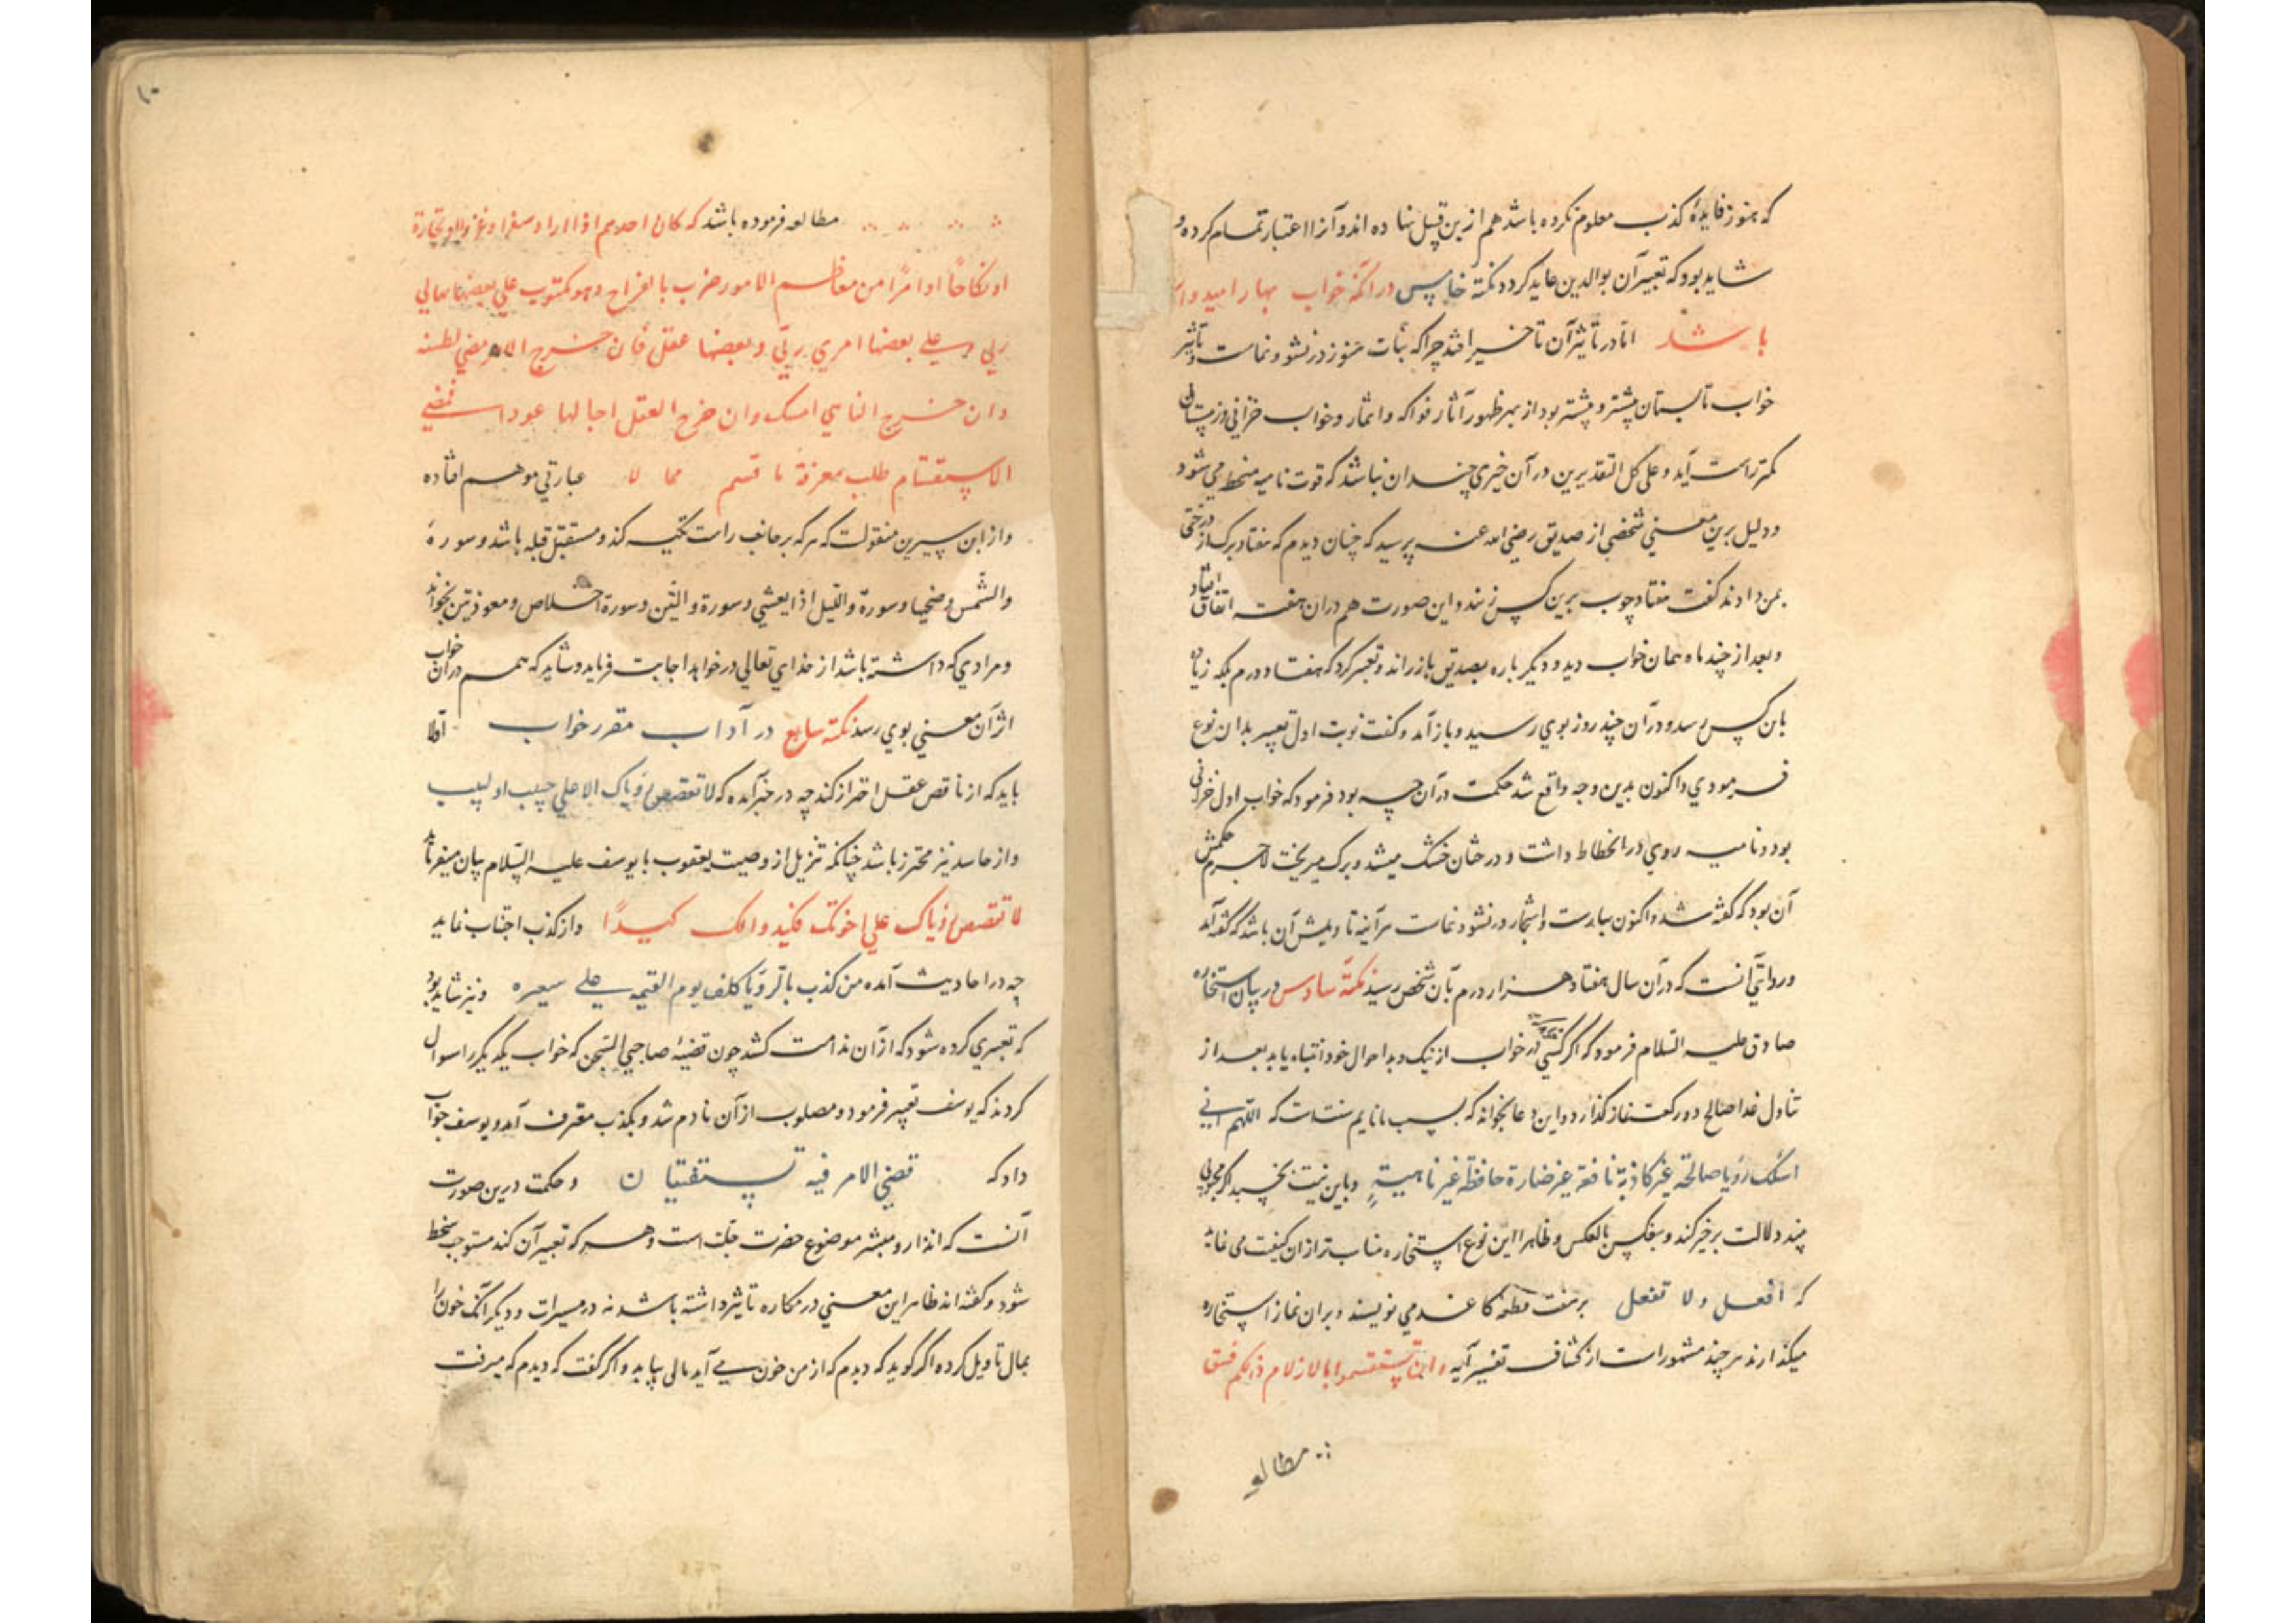 که هنوز فایدهٔ کذب معلوم نکرده باشد هم ازین قبیل نهاده اند و آنرا اعتبار تمام کرده و
شاید بود که تعبیر آن بوالدین عاید کردد نکتهٔ خامس در آنکه خواب بهار امیدوار
باشد اما در تأثیر آن تاخیر افتد چرا که نبات هنوز در نشو و نماست و تأثیر
خواب تابستان بیشتر و پیشتر بود از بهر ظهور آثار فواکه و اثمار و خواب خزانی و زمستان
کمتر راست آید و علی کل التقدیرین در آن خیری چندان نباشد که قوت نامیه منحط می شود
و دلیل برین معنی شخصی از صدیق رضی الله عنه پرسید که چنان دیدم که هفتاد برک از درختی
بمن دادند کفت هفتاد چوب برین کس زنند و این صورت هم در ان هفته اتفاق افتاد
و بعد از چند ماه همان خواب دید و دیکر باره بصدیق باز راند و تعبیر کرد که هفتاد درم بلکه زیاده
باین کس رسد و در آن چند روز بوی رسید و باز آمد و کفت نوبت اول تعبیر بدان نوع
فرمودی و اکنون بدین وجه واقع شد حکمت در آن چه بود فرمود که خواب اول خزانی
بود و نامیه روی در انحطاط داشت و درختان خشک میشد و برک میریخت لاجرم حکمش
آن بود که کفته شد و اکنون بهارست و اشجار در نشو و نماست هر آینه تاویلش آن باشد که کفته آمد
و روایتی آنست که در آن سال هفتاد هزار درم بآن شخص رسید نکتهٔ سادس در بیان استخاره
صادق علیه السلام فرمود که اکر کسی در خواب از نیک و بد احوال خود انتباه یابد بعد از
تناول غدا صالح دو رکعت نماز کذارد و این دعا بخواند که سنت است که اللهم انی
اسئلک رؤیا صالحة غیر کاذبة نافعة غیر ضارة حافظة غیر ناهیة و باین نیت بخسبد اکر محبوبی
بیند دلالت بر خیر کند و بعکس بالعکس و ظاهرا این نوع استخاره مناسب تر از ان کیفیت می نماید
که افعل و لا تفعل بر هفت قطعه کاغذ می نویسند و بران نماز استخاره
میکذارند هر چند مشهور است از کشاف تفسیر آیه و ان تستقسموا بالازلام ذلکم فسق
مطالعه
۱۰
مطالعه فرموده باشد که کان احدهم اذا اراد سفرا او غزوا او تجارة
او نکاحا او امرا من معاظم الامور ضرب بالقداح و هو مکتوب علی بعضها نهانی
ربی و علی بعضها امرنی ربی و بعضها غفل فان خرج الامر مضی لطیته
و ان خرج الناهی امسک و ان خرج الغفل اجالها عودا فمعنی
الاستقسام طلب معرفة ما قسم مما لا عبارتی موهم افتاده
و از ابن سیرین منقولست که هرکه بر جانب راست تکیه کند و مستقبل قبله باشد و سورهٔ
والشمس وضحیها و سورة واللیل اذا یغشی و سورة والتین و سورة اخلاص و معوذتین بخواند
و مرادی که داشته باشد از خدای تعالی درخواهد اجابت فرماید و شاید که هم در ان خواب
اثر آن معنی بوی رسد نکتهٔ سابع در آداب مقرر خواب اولا
باید که از ناقص عقل احتراز کند چه در خبر آمده که لا تقصص رؤیاک الا علی حبیب او لبیب
و از حاسد نیز محترز باشد چنانکه تنزیل از وصیت یعقوب با یوسف علیه السلام بیان میفرماید
لا تقصص رؤیاک علی اخوتک فیکیدوا لک کیدا و از کذب اجتناب نماید
چه در احادیث آمده من کذب بالرؤیا کلف یوم القیمه علی شعیره و نیز شاید بود
که تعبیری کرده شود که از آن ندامت کشد چون قضیهٔ صاحبی السجن که خواب یکدیکر را سوال
کردند که یوسف تعبیر فرمود و مصلوب از آن نادم شد و بکذب معترف آمد و یوسف جواب
داد که قضی الامر فیه تستفتیان و حکمت درین صورت
آنست که انذار و مبشر موضوع حضرت جلت است و هر که تعبیر آن کند مستوجب سخط
شود و کفته اند ظاهر این معنی در مکاره تاثیر داشته باشد نه در مسرات و دیکر آنکه خون را
بمال تاویل کرده اکر کوید که دیدم که از من خون می آید مالی بیابد و اکر کفت که دیدم که میرفت